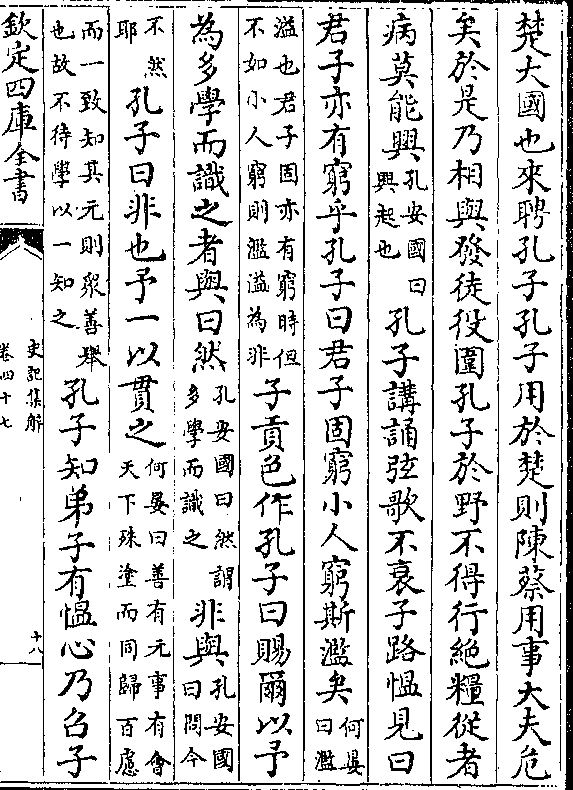 楚大國也來聘孔子孔子用於楚則陳蔡用事大夫危
矣於是乃相與發徒役圍孔子於野不得行絶糧從者
病莫能興孔安國曰興起也孔子講誦弦歌不衰子路慍見曰
君子亦有窮乎孔子曰君子固窮小人窮斯濫矣何晏曰濫
溢也君子固亦有窮時但不如小人窮則濫溢為非子貢色作孔子曰賜爾以予
為多學而識之者與曰然孔安國曰然謂多學而識之非與孔安國曰問今
不然耶孔子曰非也予一以貫之何晏曰善有元事有會天下殊塗而同歸百慮
而一致知其元則衆善舉也故不待學以一知之孔子知弟子有慍心乃召子
欽定四庫全書
史記集解
卷四十七
十八